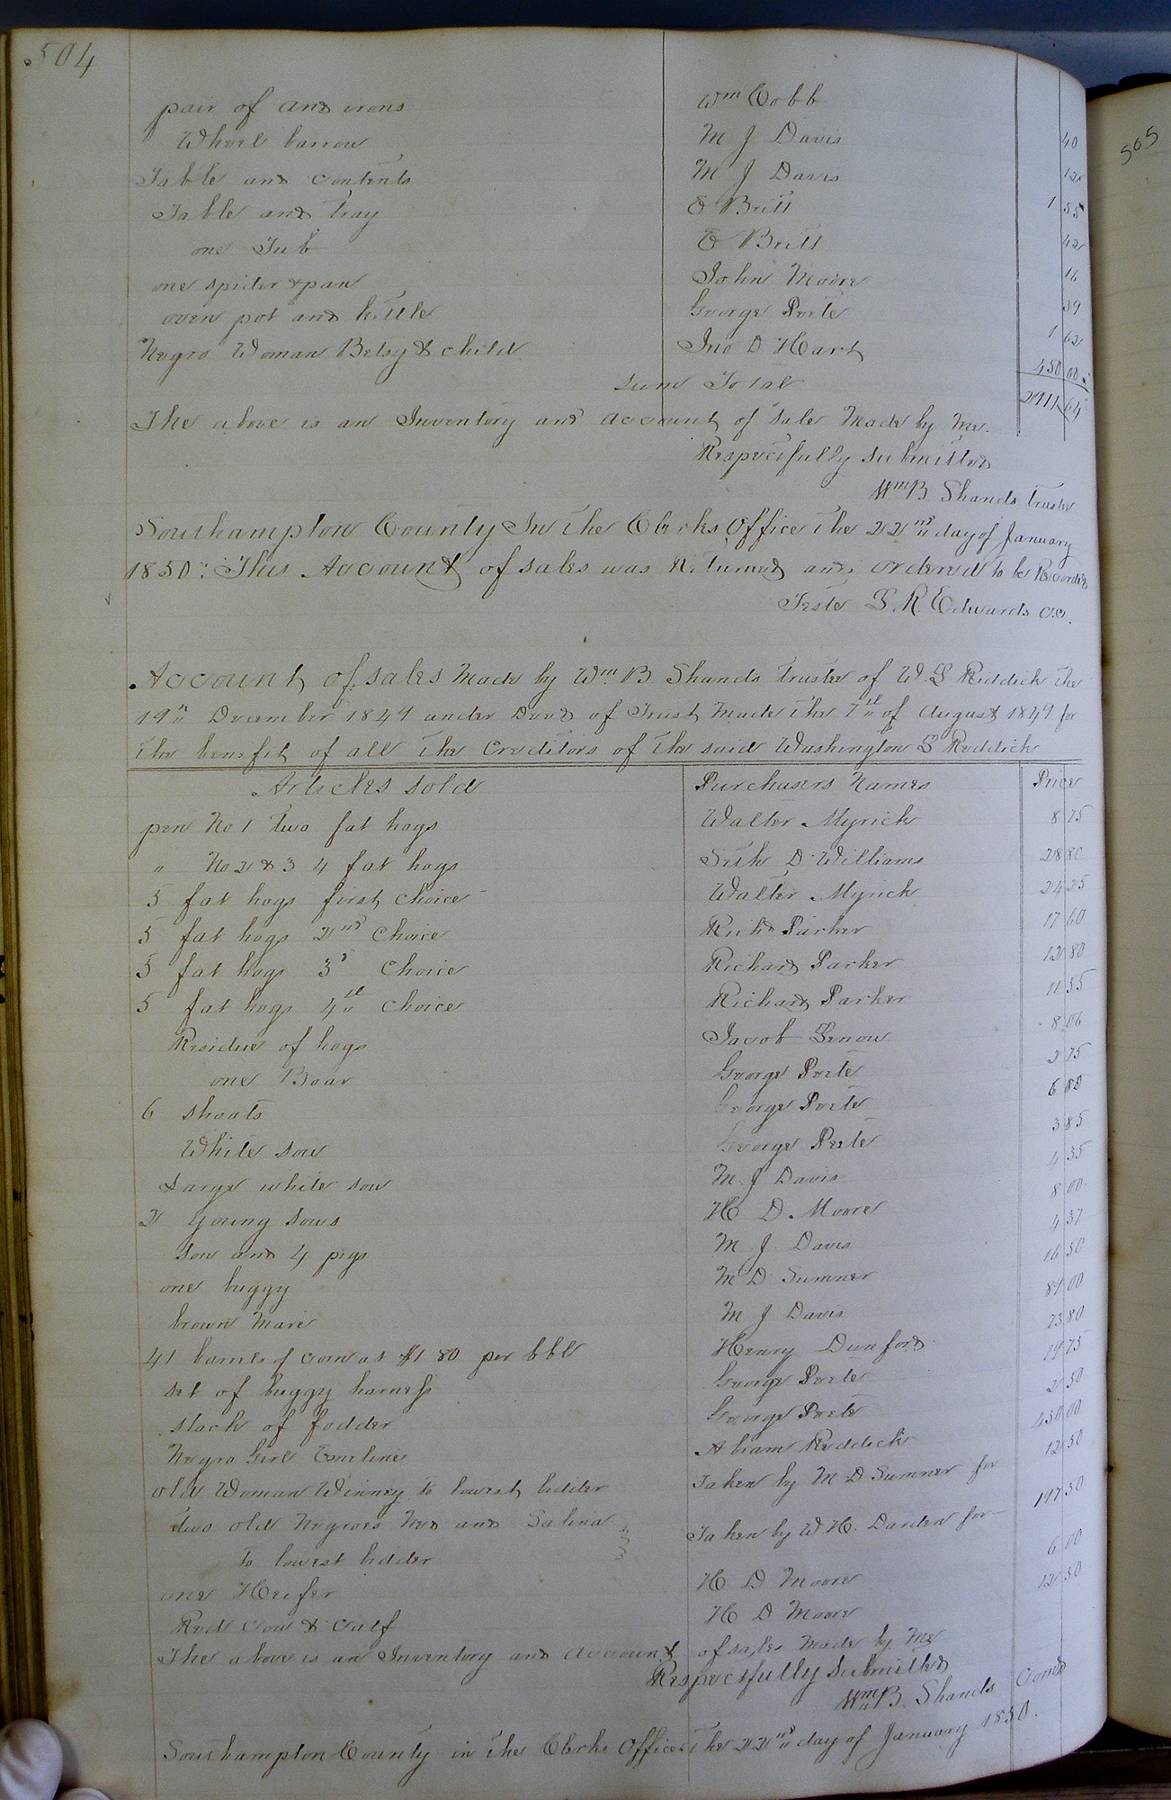 504
pair of and irons Wm Cobb
Wheel barrow M J Davis 40
Table and contents M J Davis 12
Table and Tray E Britt 1 55
one Tub E Britt 42
one spider & pan John Moore 16
oven pot and kettle George Porte 39
Negro Woman Betsy & child Jno D Hart 1 62
450 00
Sum Total 2911 64
The above is an Inventory and account of sale Made by Me.
Respectfully submitted
Wm B. Shands trustee
Southampton County In the Clerks Office the 22nd day of January
1850: This Account of sales was Returned and ordered to be Recorded
Teste L. R. Edwards CC.
Account of sales Made by Wm B. Shands trustee of W L Riddick the
19th December 1849 under Deed of Trust Made the 7th of August 1849 for
the benefit of all the Creditors of the said Washington L Reddick
Articles Sold Purchasers Names Price
pen No 1 two fat hogs Walter Myrick 8 75
" No 2 & 3 4 fat hogs Seth D Williams 28 80
5 fat hogs first choice Walter Myrick 24 25
5 fat hogs 2nd Choice Richd Parker 17 60
5 fat hogs 3d Choice Richard Parker 12 80
5 fat hogs 4th Choice Richard Parker 11 55
Residue of hogs Jacob Lenow 8 06
one Boar George Porte 2 75
6 shoats George Porte 6
White sow George Porte 3 85
Large white sow M J Davis 4 35
2 young sows H D Moore 8 00
sow and 4 pigs M J Davis 4 37
one buggy M D Sumner 16 50
brown Mare M J Davis 00
41 barrels of corn at $1 80 per bbl Henry Dunford 73 80
set of buggy harness George Porte 75
stack of fodder George Porte 2 50
Negro Girl Emeline Abram Reddick 450 00
old Woman Winney to lowest bidder Taken by M D Sumner for 12 50
two old Negroes Ned and Salena Taken by W H. Darden for 197 50
to lowest bidder
one Heifer H D Moore 6 00
Red cow & calf H D Moore 12 50
The above is an Inventory and account of sales Made by Me
Respectfully Submitted
Wm B. Shands Comr
Southampton County in the Clerks Office: The 22nd day of January 1850.
505